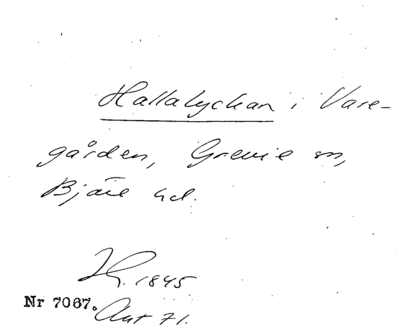 Hallalyckan i Vare-
gården, Grevie sn,
Bjäre hd.
1845
Nr 7067.
Ant 71.